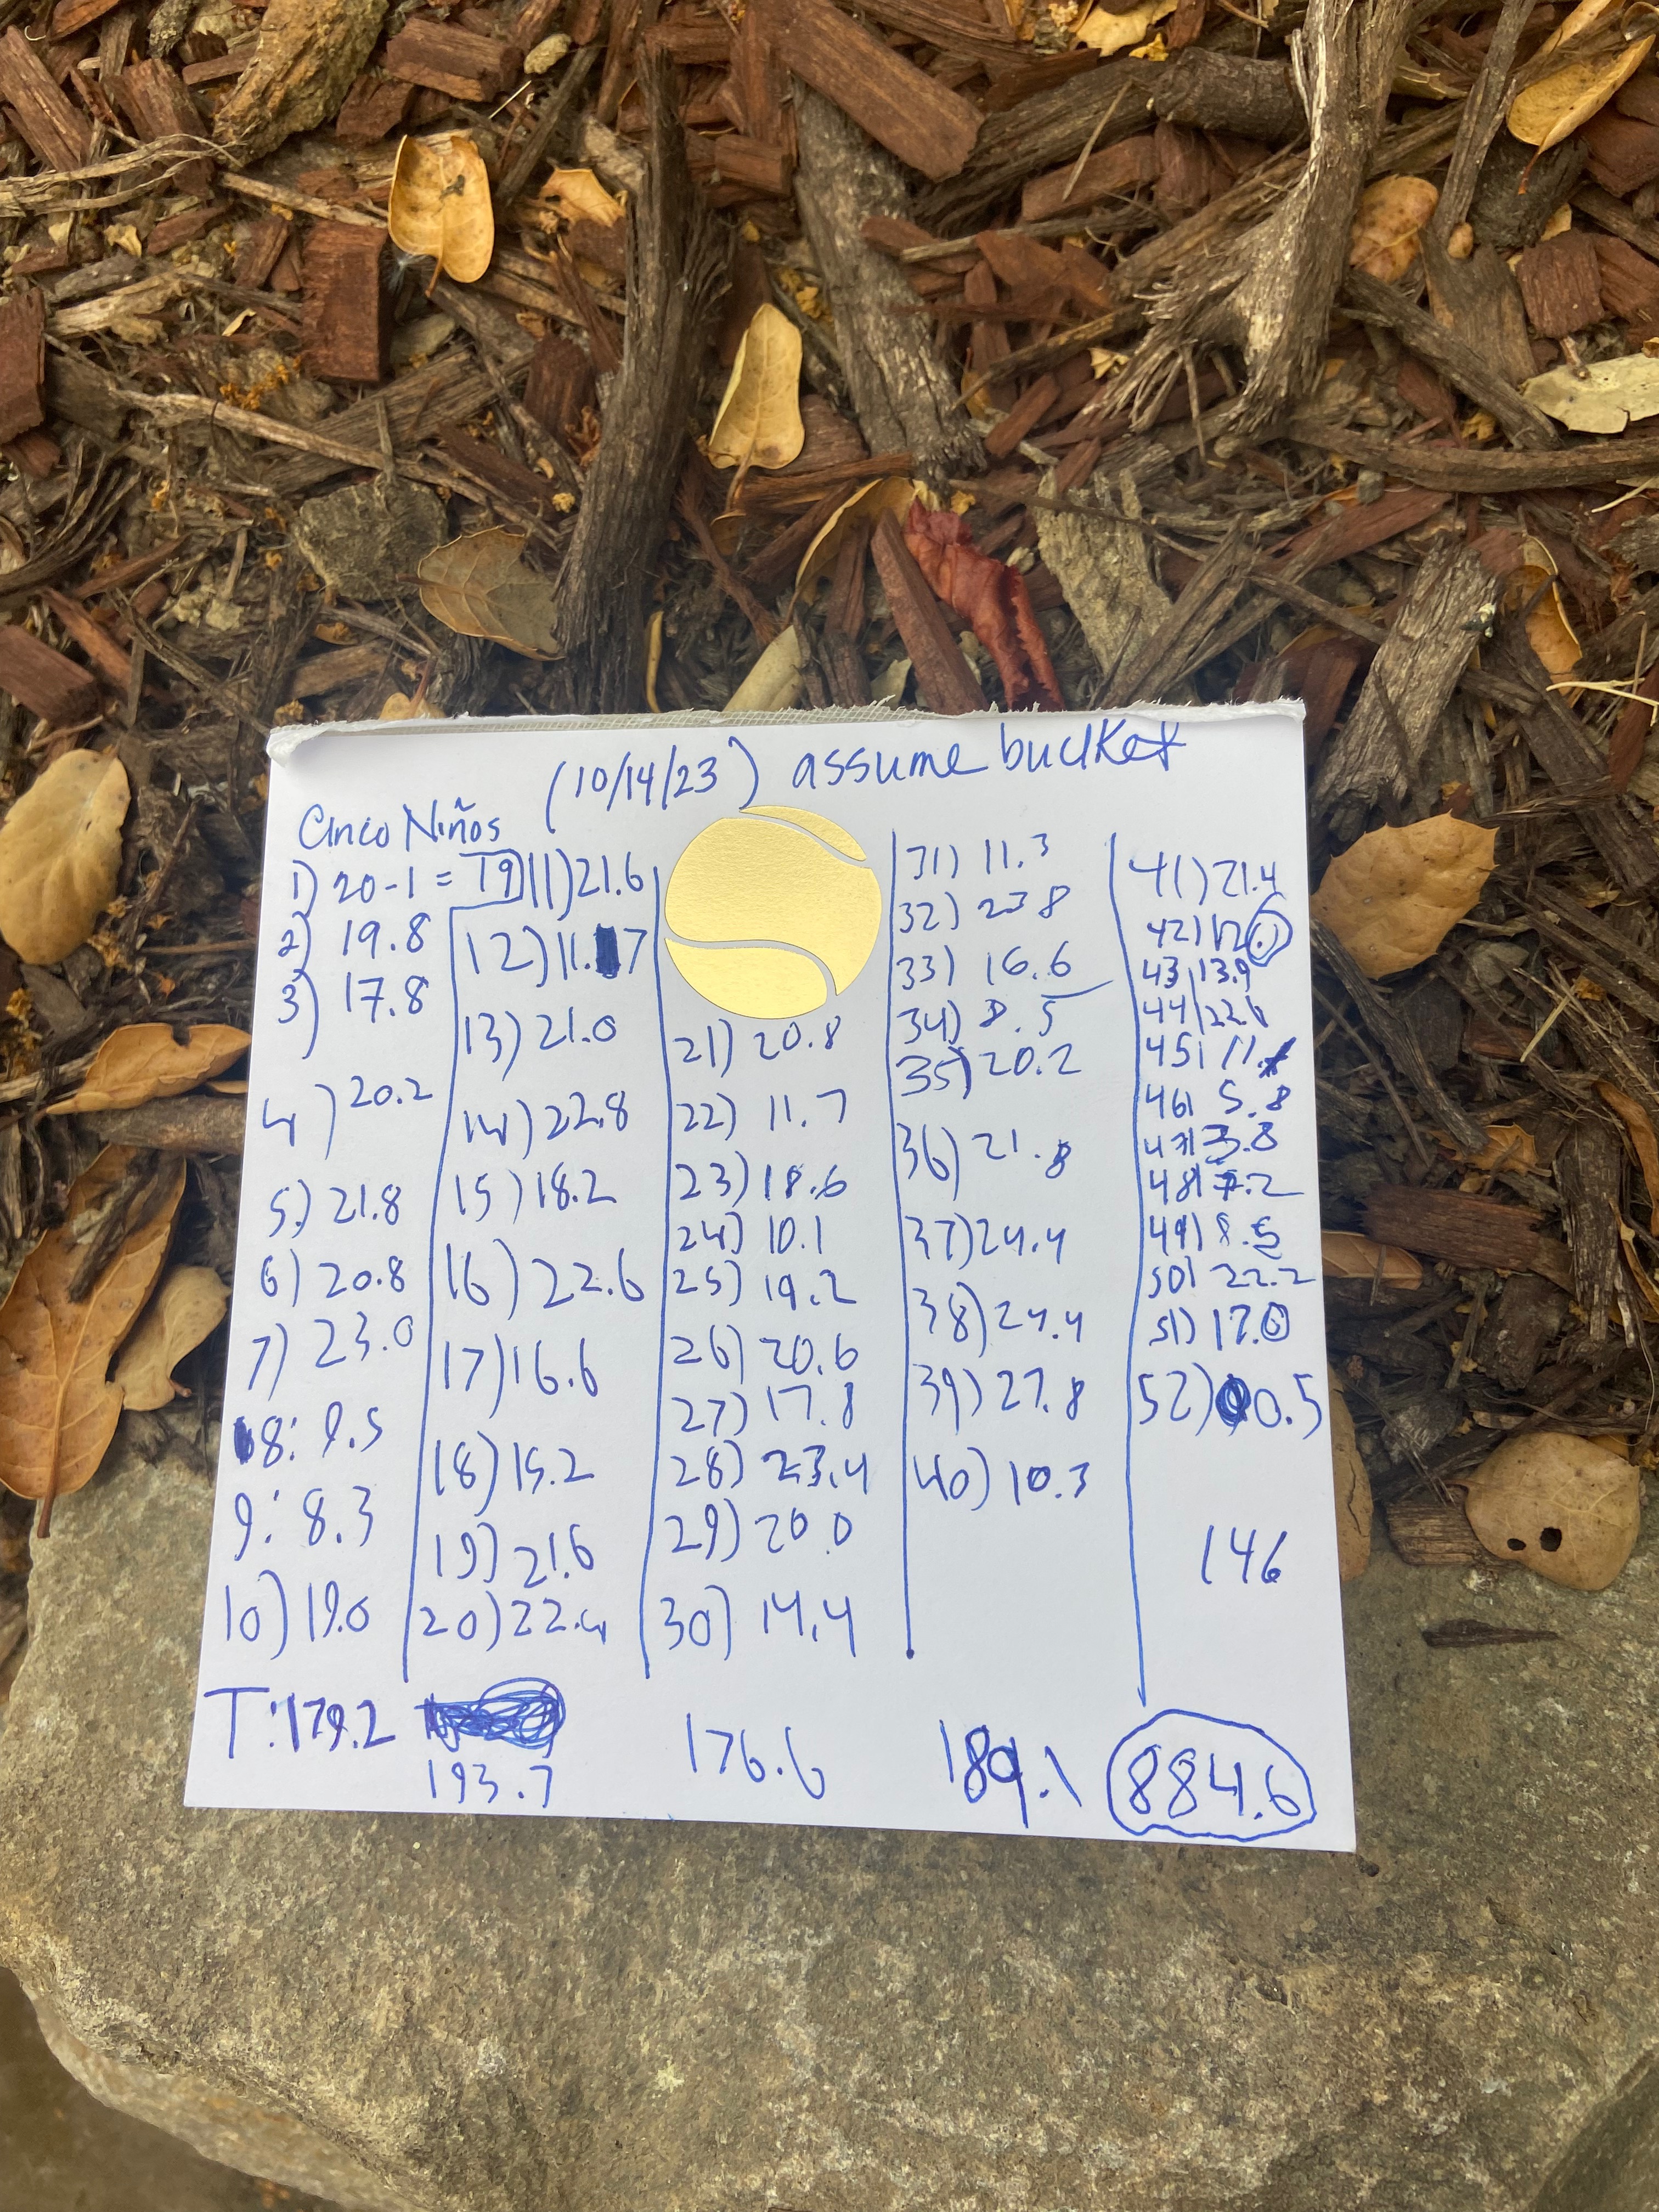 (10/14/23) assume bucket
Cinco Niños
1) 20-1 = 19
2) 19.8
3) 17.8
4) 20.2
5.) 21.8
6) 20.8
7) 23.0
8: 9.5
9: 8.3
10) 19.0
T: 179.2
11) 21.6
12) 11.7
13) 21.0
14) 22.8
15) 18.2
16) 22.6
17) 16.6
18) 15.2
19) 21.6
20) 22.4
193.7
21) 20.8
22) 11.7
23) 18.6
24) 10.1
25) 19.2
26) 20.6
27) 17.8
28) 23.4
29) 20.0
30) 14.4
176.6
31) 11.3
32) 23.8
33) 16.6
34) 8.5
35) 20.2
36) 21.8
37) 24.4
38) 24.4
39) 27.8
40) 10.3
189.1
41) 21.4
42)
43) 13.9
44)
45)
46) 5.8
47) 3.8
48) 7.2
49) 8.5
50) 22.2
51) 17.0
52) 0.5
146
884.6